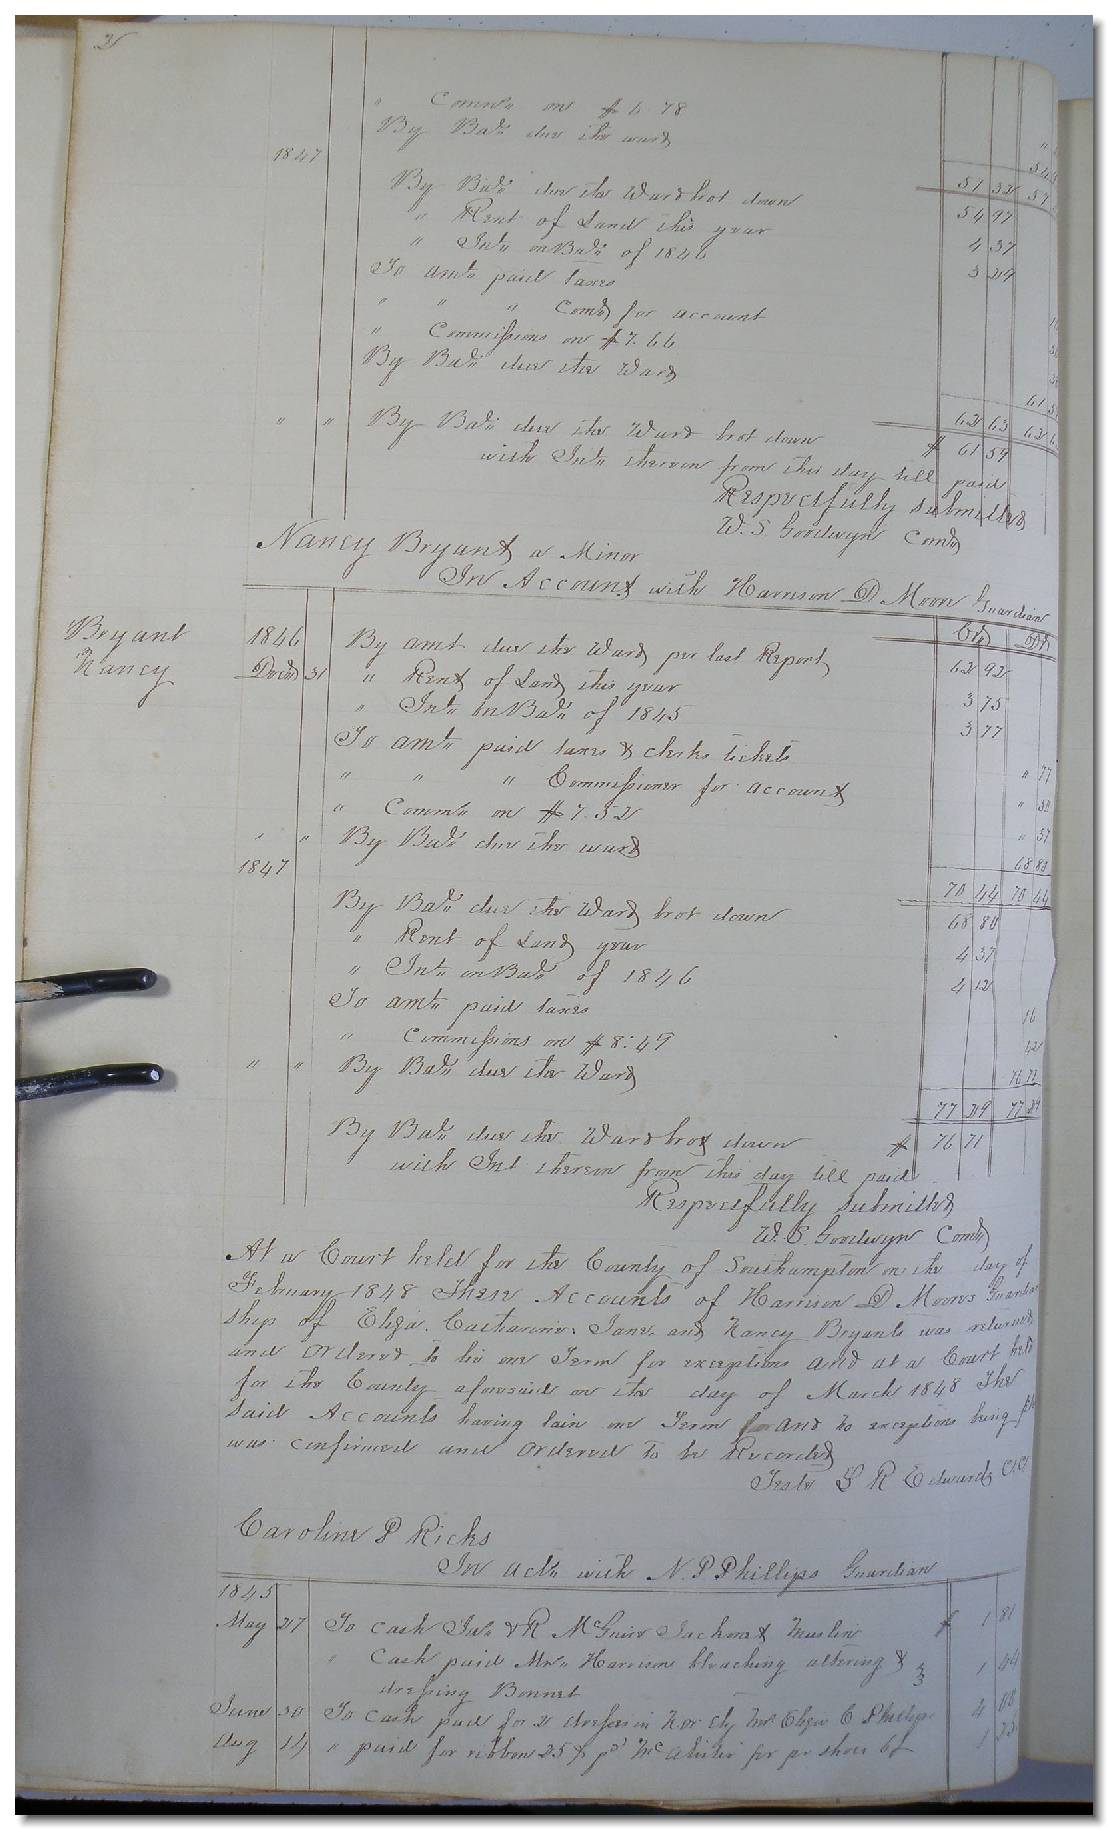 2
" Comn" on $6.78
By Bal" due the ward
1847
By Bal" due the Ward brot down 51 32 57
" Rent of Land this year 54 97
" Int" on Bal" of 1846 4 37
To amt" paid taxes 3 29
" " " Comr for account
" Commissions on $7.66
By Bal" due the Ward 61 5
" " By Bal" due the Ward brot down 62 63 62 6
with Int" thereon from this day till paid $ 61 59
Respectfully submitted
W. S. Goodwyn Comr
Nancy Bryant a Minor
In Account with Harrison D Moore Guardian
Bryant Nancy
1846 Cr Dr
By amt due the Ward per last Report 62 92
Decr 31 " Rent of Land this year 3 75
" Int" on Bal" of 1845 3 77
To amt" paid taxes & clerks tickets " 77
" " " Commissioner for account " 30
" Comm" on $7.52 " 37
" " By Bal" due the ward 68 80
1847 70 44 70 44
By Bal" due the Ward brot down 68 80
" Rent of Land year 4 37
" Int" on Bal" of 1846 4 12
To amt" paid taxes 16
" Commissions on $8.49 42
" " By Bal" due the Ward 76 71
77 29 77 29
By Bal" due the Ward brot down $ 76 71
with Int thereon from this day till paid
Respectfully submitted
W. S. Goodwyn Comr
At a Court held for the County of Southampton on the day of
February 1848 These Accounts of Harrison D Moores Guardian
ship of Eliza. Catharine. Jane. and Nancy Bryants was returned
and Ordered to lie one Term for exceptions and at a Court held
for the County aforesaid on the day of March 1848 The
said Accounts having lain one Term for and no exceptions being
was confirmed and Ordered to be Recorded
Teste L R Edwards Clk
Caroline P Ricks
In act" with N. P Phillips Guardian
1845
May 27 To Cash Jno & R McGuire Jackonet Muslin $ 1 81
" Cash paid Mrs" Harrison bleaching altering & 1 44
dressing Bonnet
June 30 To Cash paid for 2 dresses in Nor Ely Mrs Eliza C Phillips 4 00
Aug 14 " paid for ribbon 25 & pd for pr shoes 6/ 1 25